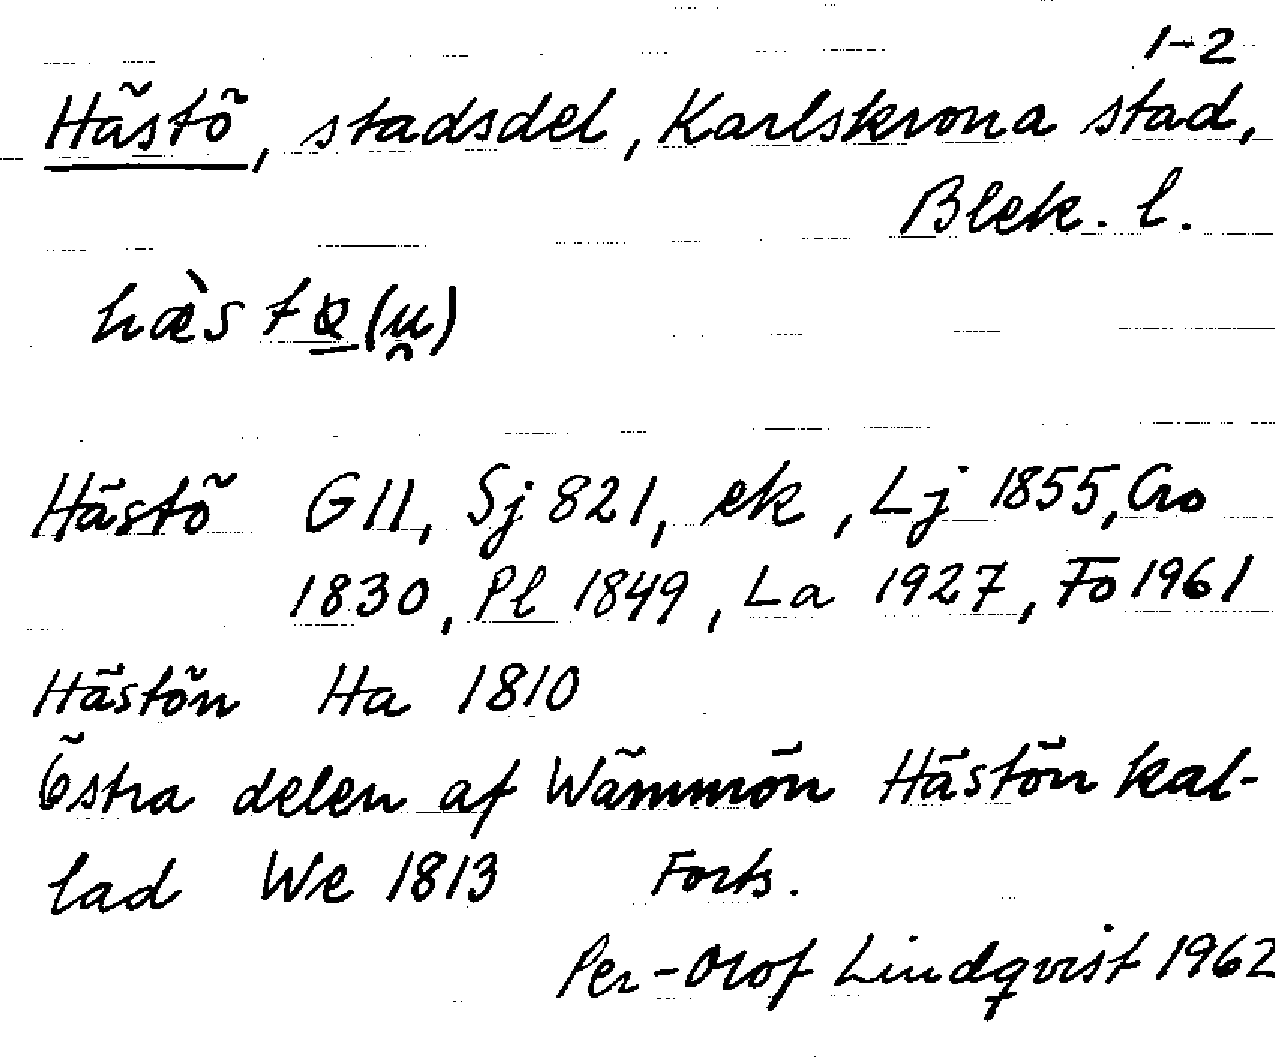 1-2
Hästö, stadsdel, Karlskrona stad,
Blek. l.
Hästö G11, Sj 821, ek, Lj 1855, Cro
1830, Pl 1849, La 1927, Fo 1961
Hästön Ha 1810
Östra delen af Wämmön Hästön kal-
lad We 1813 Forts.
Per-Olof Lindqvist 1962